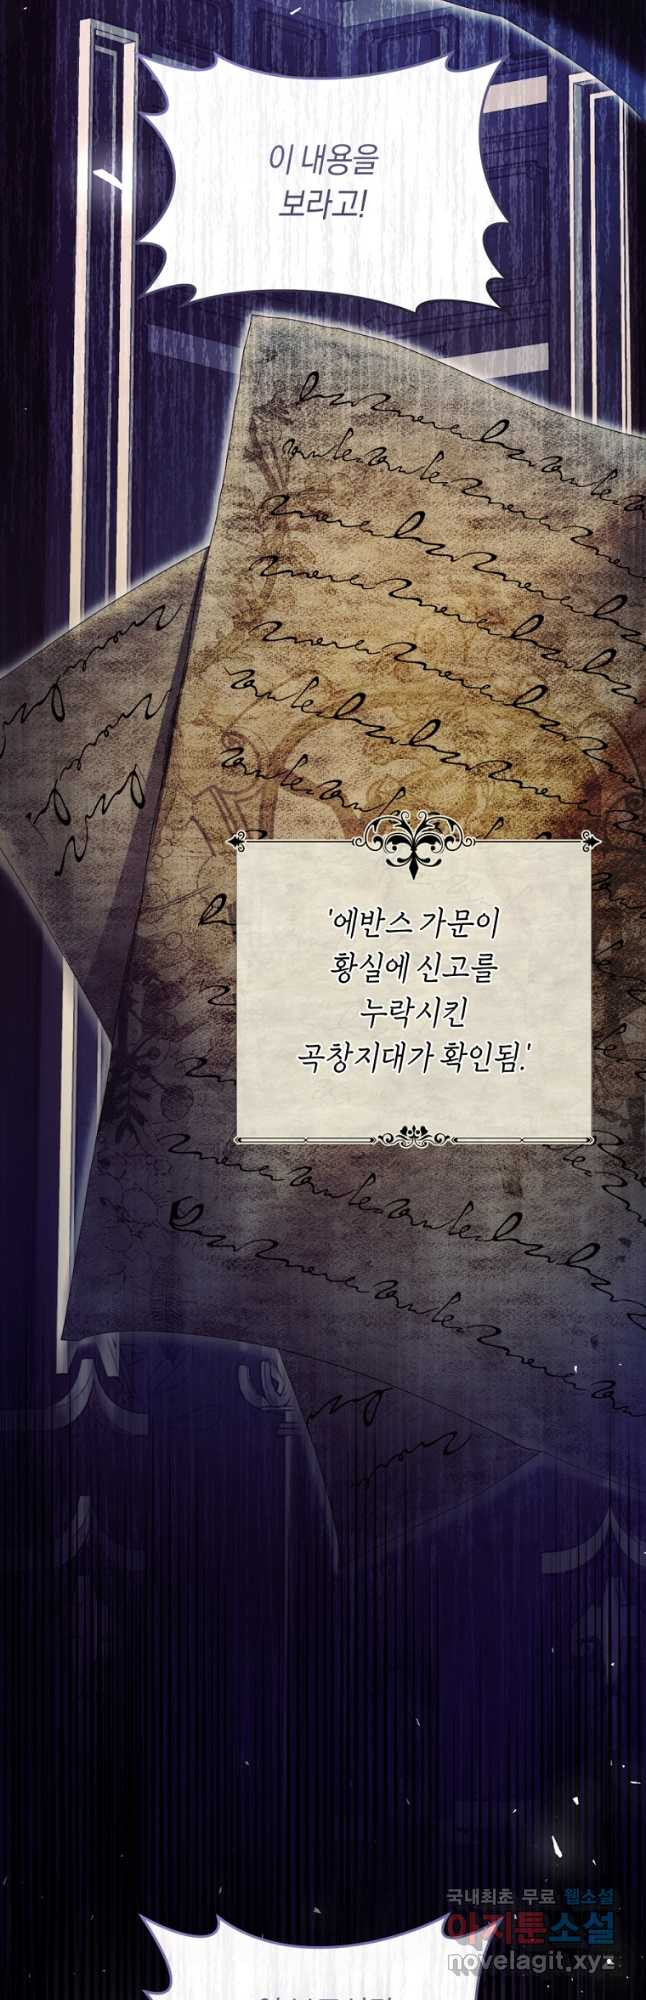 이 내용을
보라고!
'에반스 가문이
황실에 신고를
누락시킨
곡창지대가 확인됨.'
국내최초 무료 웹소설
아지툰소설
novelagit.xyz